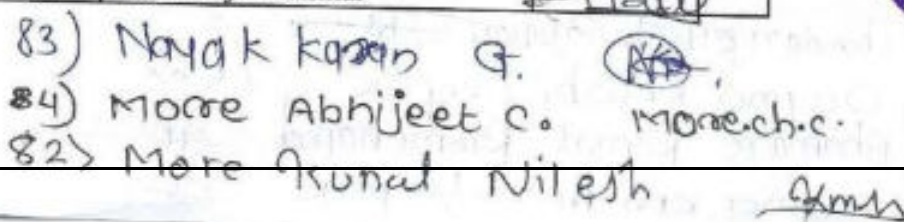 83) Nayak Karan G.
84) More Abhijeet C. More.ch.c.
82) More Kunal Nilesh